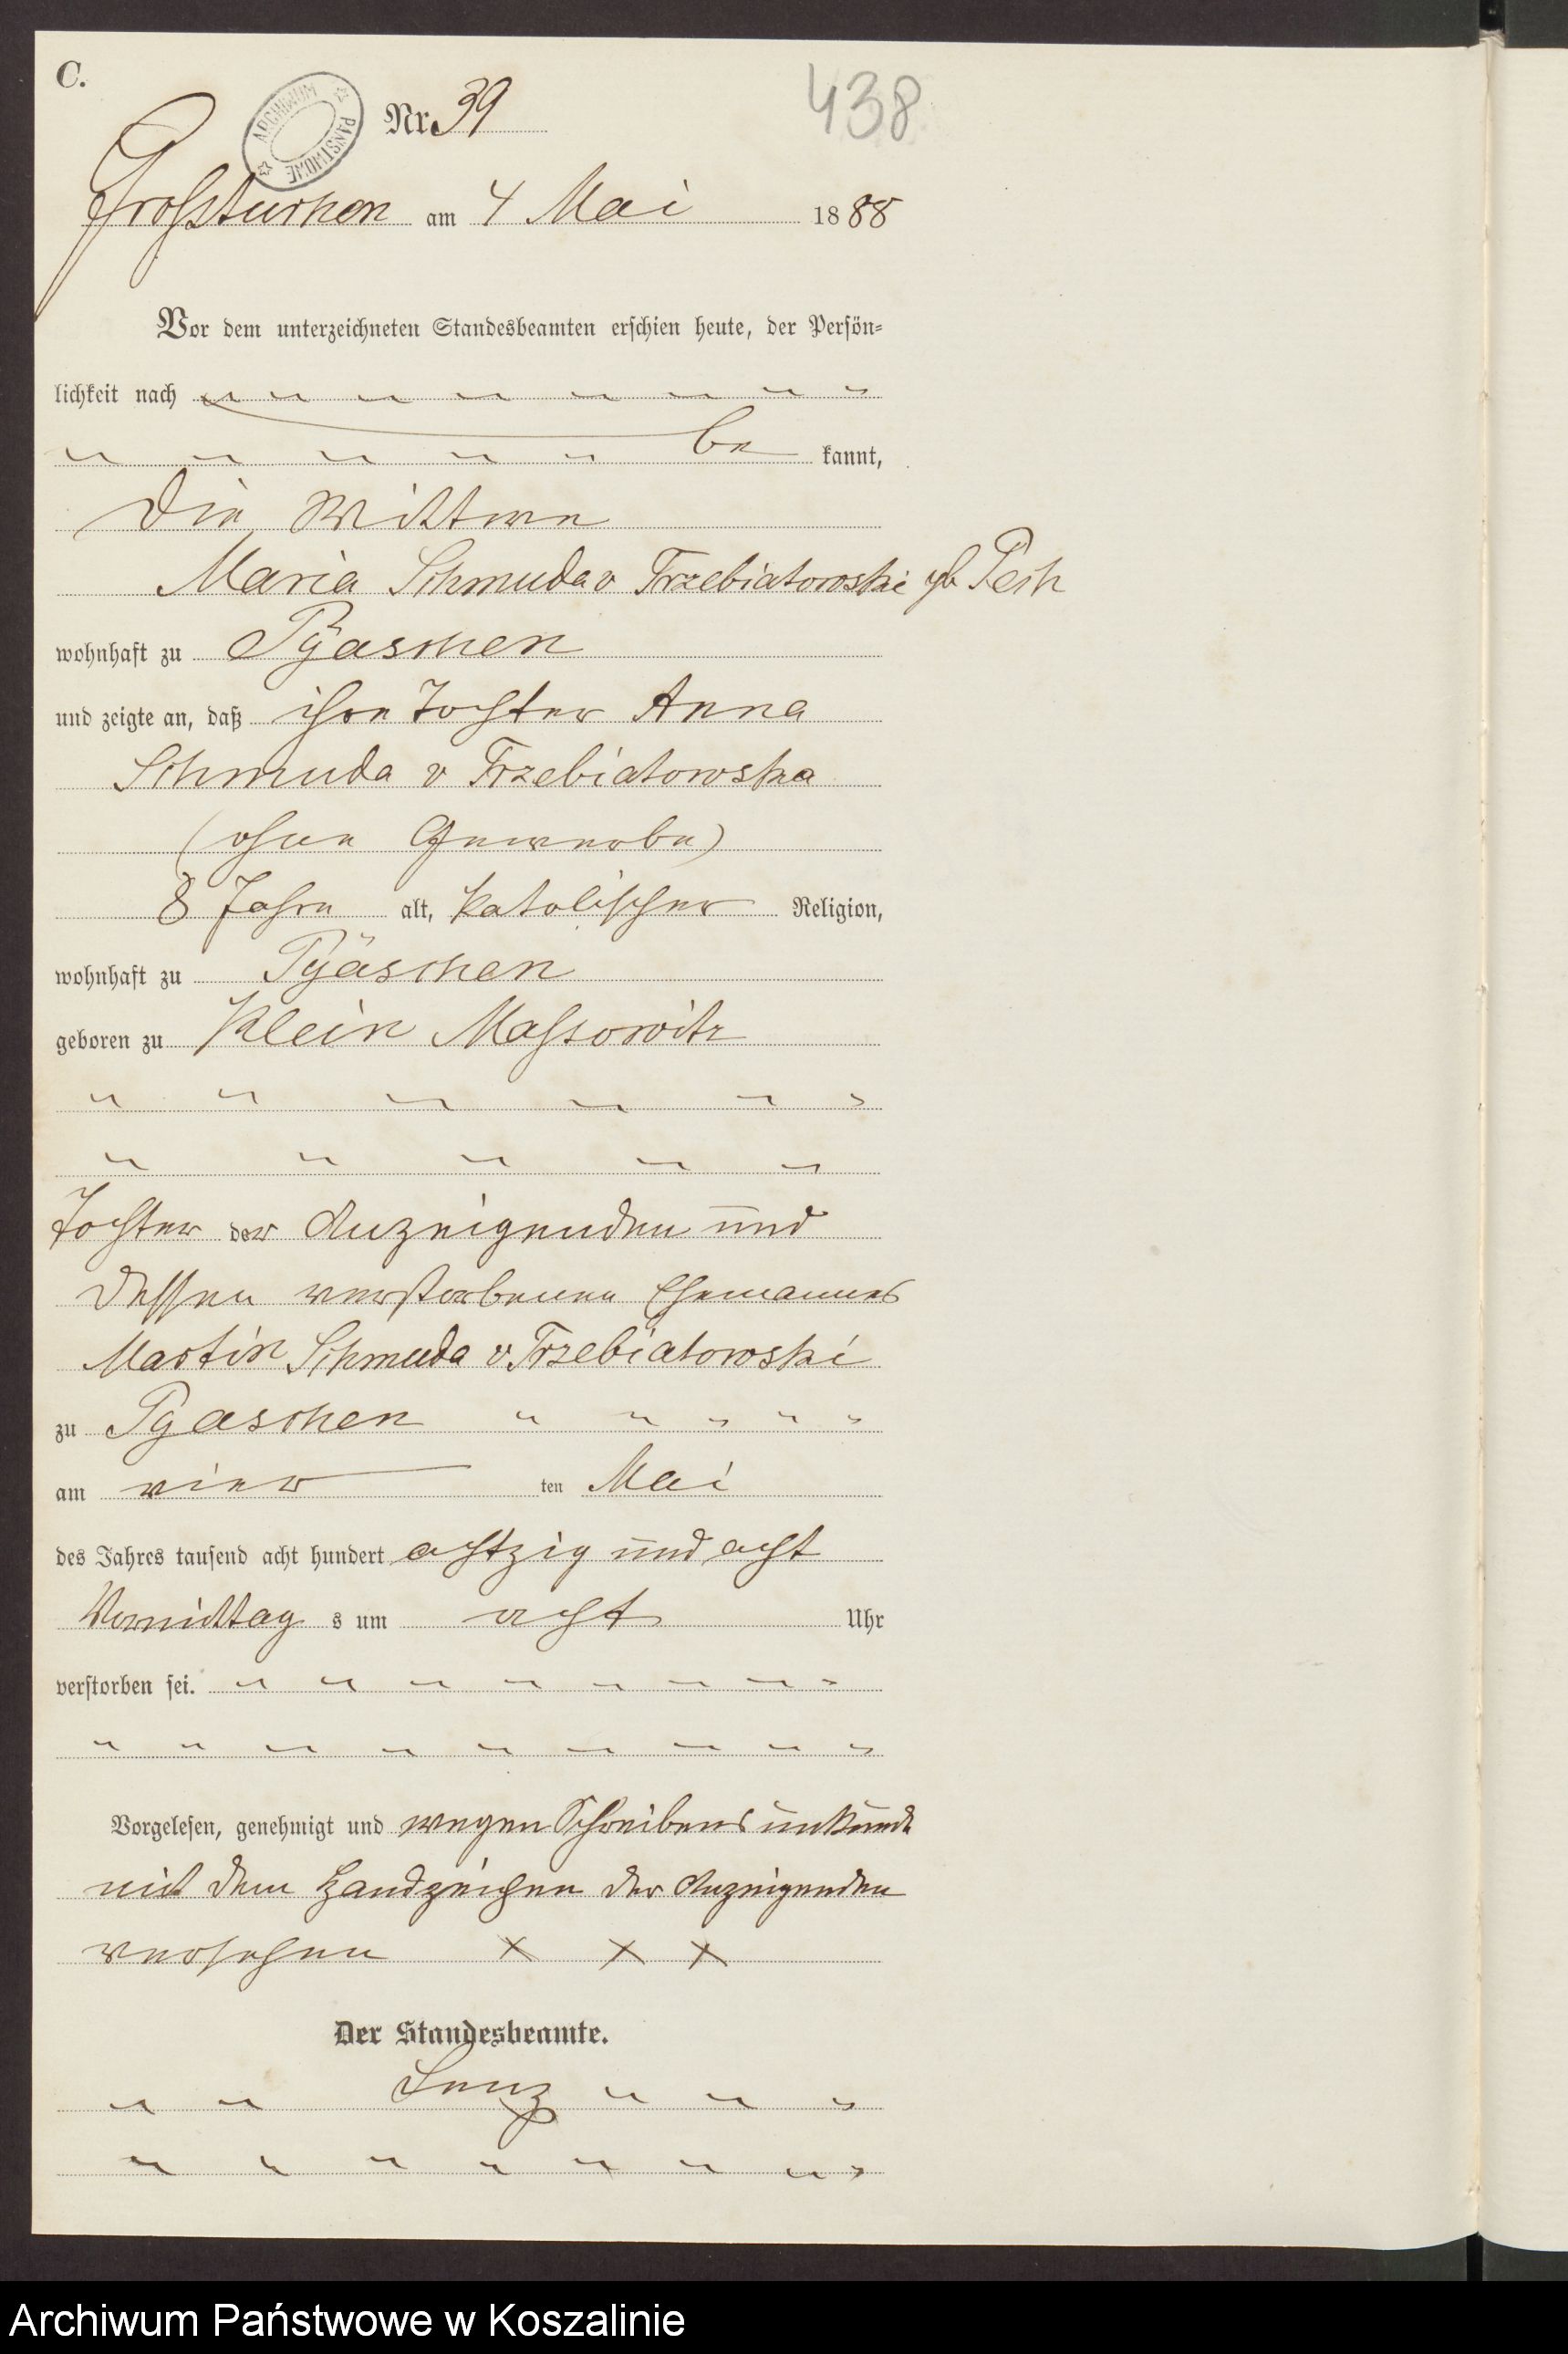 C.
ARCHIWUM PAŃSTWOWE
Nr. 39
438
Großtuchen am 4 Mai 1888
Vor dem unterzeichneten Standesbeamten erschien heute, der Persön-
lichkeit nach
be kannt,
die Wittwe
Maria Schmuda v Trzebiatowski gb Pech
wohnhaft zu Pyaschen
und zeigte an, daß ihre Tochter Anna
Schmuda v Trzebiatowska
(ohne Gewerbe)
8 Jahre alt, katolischer Religion,
wohnhaft zu Pyaschen
geboren zu Klein Massowitz
Tochter der Anzeigenden und
dessen verstorbenen Ehemannes
Martin Schmuda v Trzebiatowski
zu Pyaschen
am vier ten Mai
des Jahres tausend acht hundert achtzig und acht
Vormittag s um acht Uhr
verstorben sei.
Vorgelesen, genehmigt und wegen Schreibensunkunde
mit dem Handzeichen der Anzeigenden
versehen X X X
Der Standesbeamte.
Lenz
Archiwum Państwowe w Koszalinie